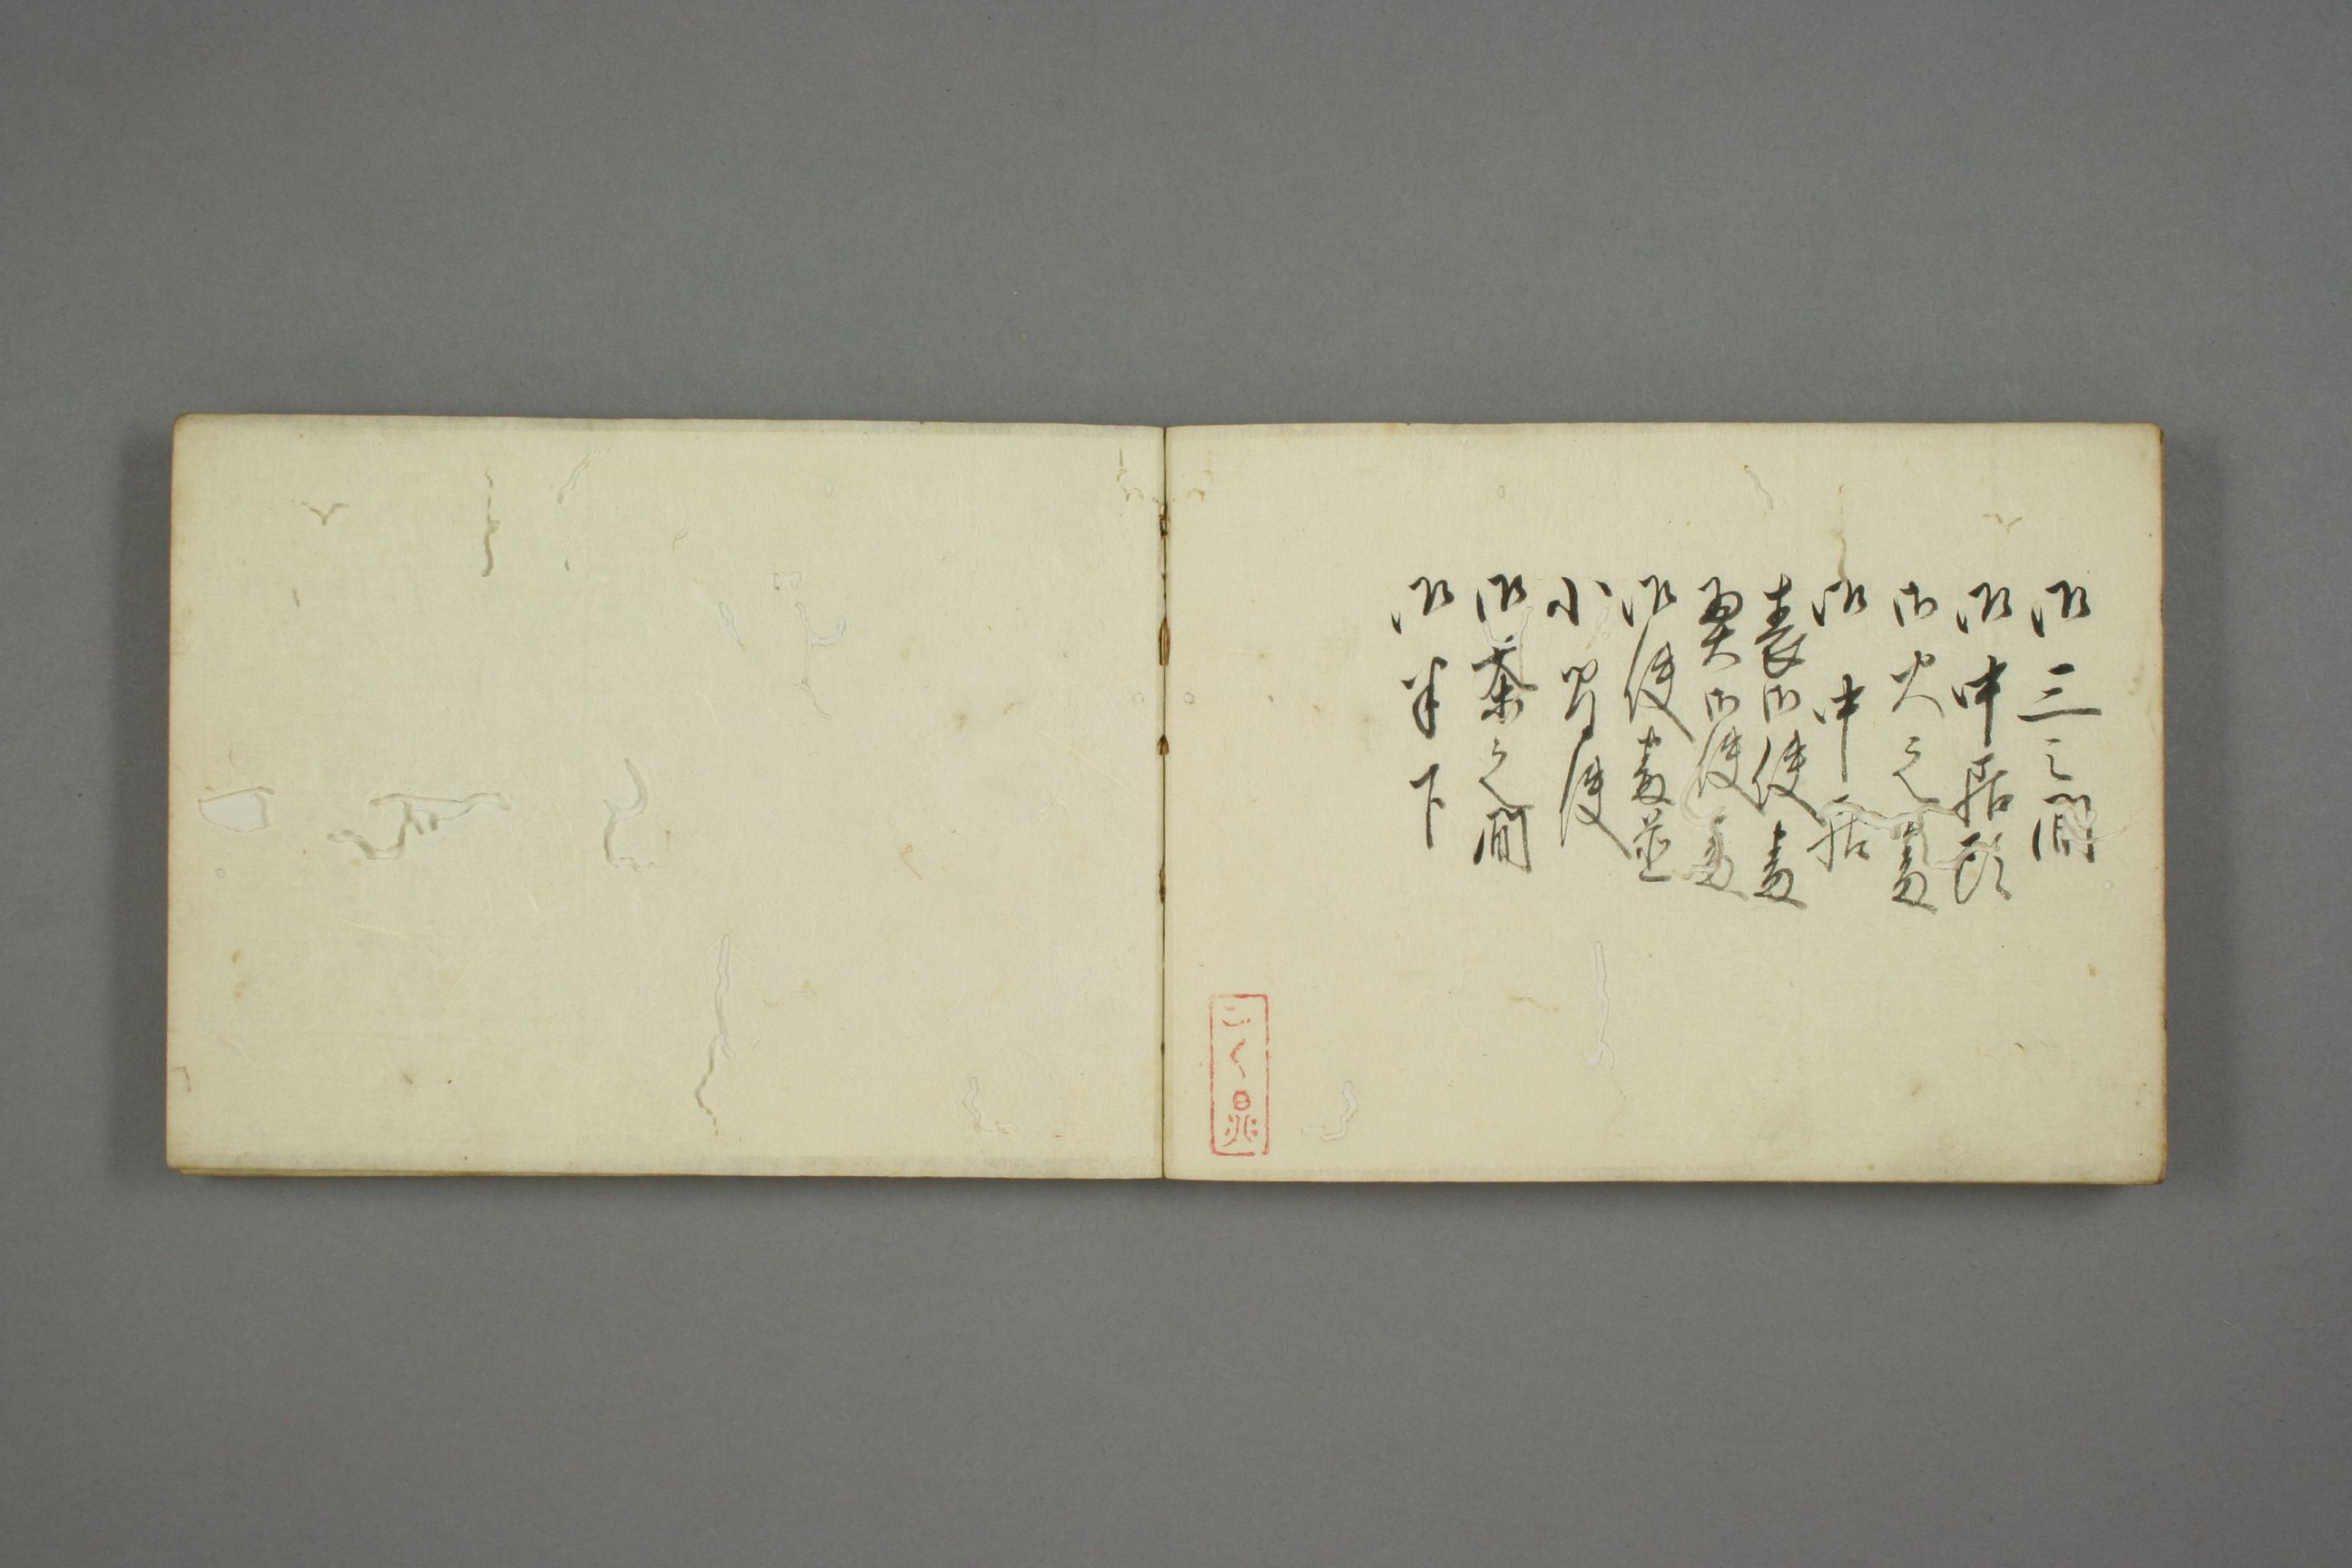 御三之間
御中居頭
御火之番
御中居
表御使番
奥御使番
御使番並
小間使
御茶之間
御半下